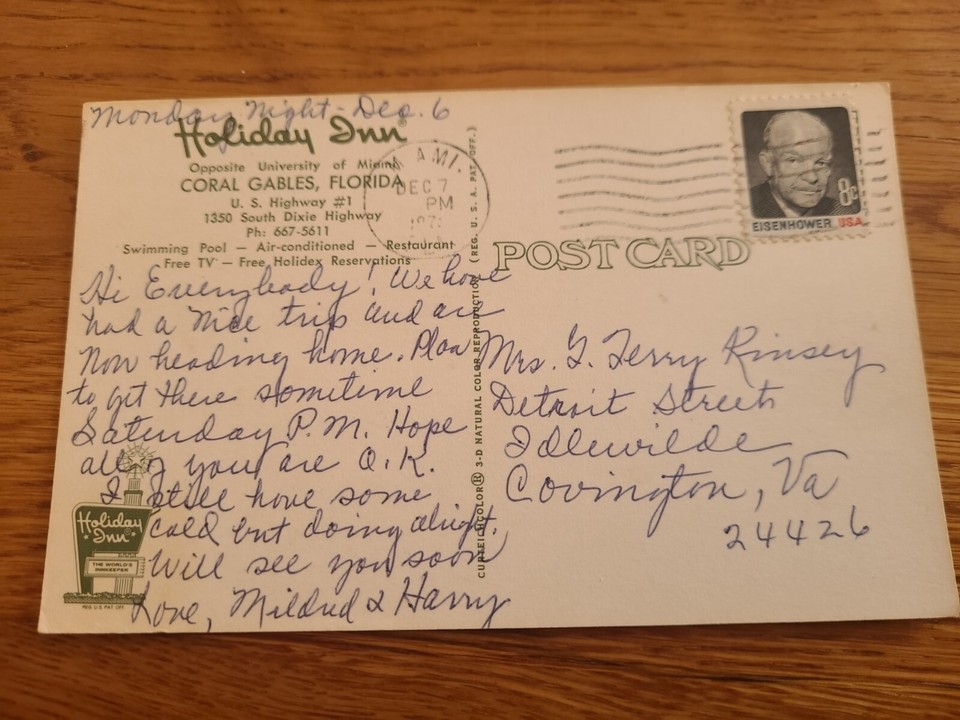 Monday Night-Dec. 6
Holiday Inn®
Opposite University of Miami
CORAL GABLES, FLORIDA
U. S. Highway #1
1350 South Dixie Highway
Ph: 667-5611
Swimming Pool — Air-conditioned — Restaurant
Free TV — Free Holidex Reservations
Hi Everybody! We have
had a nice trip and are
now heading home. Plan
to get there sometime
Saturday P.M. Hope
all of you are O.K.
I still have some
cold but doing alright.
Will see you soon
Love, Mildred & Harry
Holiday Inn®
THE WORLD'S
INNKEEPER
REG. U.S. PAT. OFF.
MIAMI,
DEC 7
PM
CURTEICHCOLOR® 3-D NATURAL COLOR REPRODUCTION (REG. U. S. A. PAT. OFF.)
8c
EISENHOWER USA
POST CARD
Mrs. G. Terry Kinsey
Detroit Street
Idlewilde
Covington, Va
24426